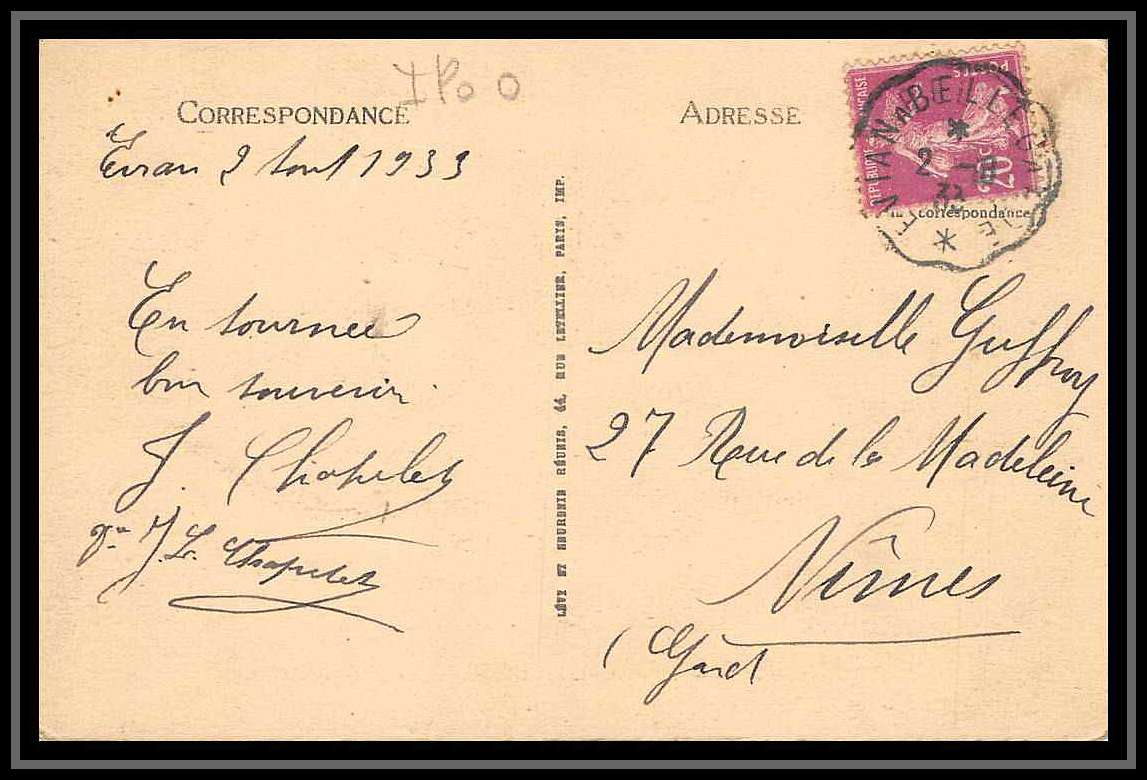 CORRESPONDANCE
Evian 2 Aout 1933
En tournée
bon souvenir.
J. Chapelet
J. L. Chapelet
LÉVI ET NEURDEIN RÉUNIS, 44, RUE LETELLIER, PARIS, IMP.
ADRESSE
POSTES
REPUBLIQUE FRANÇAISE
20c
EVIAN A BELLEGARDE
2 -8
33
la correspondance
Mademoiselle Guffroy
27 Rue de la Madeleine
Nîmes
(Gard